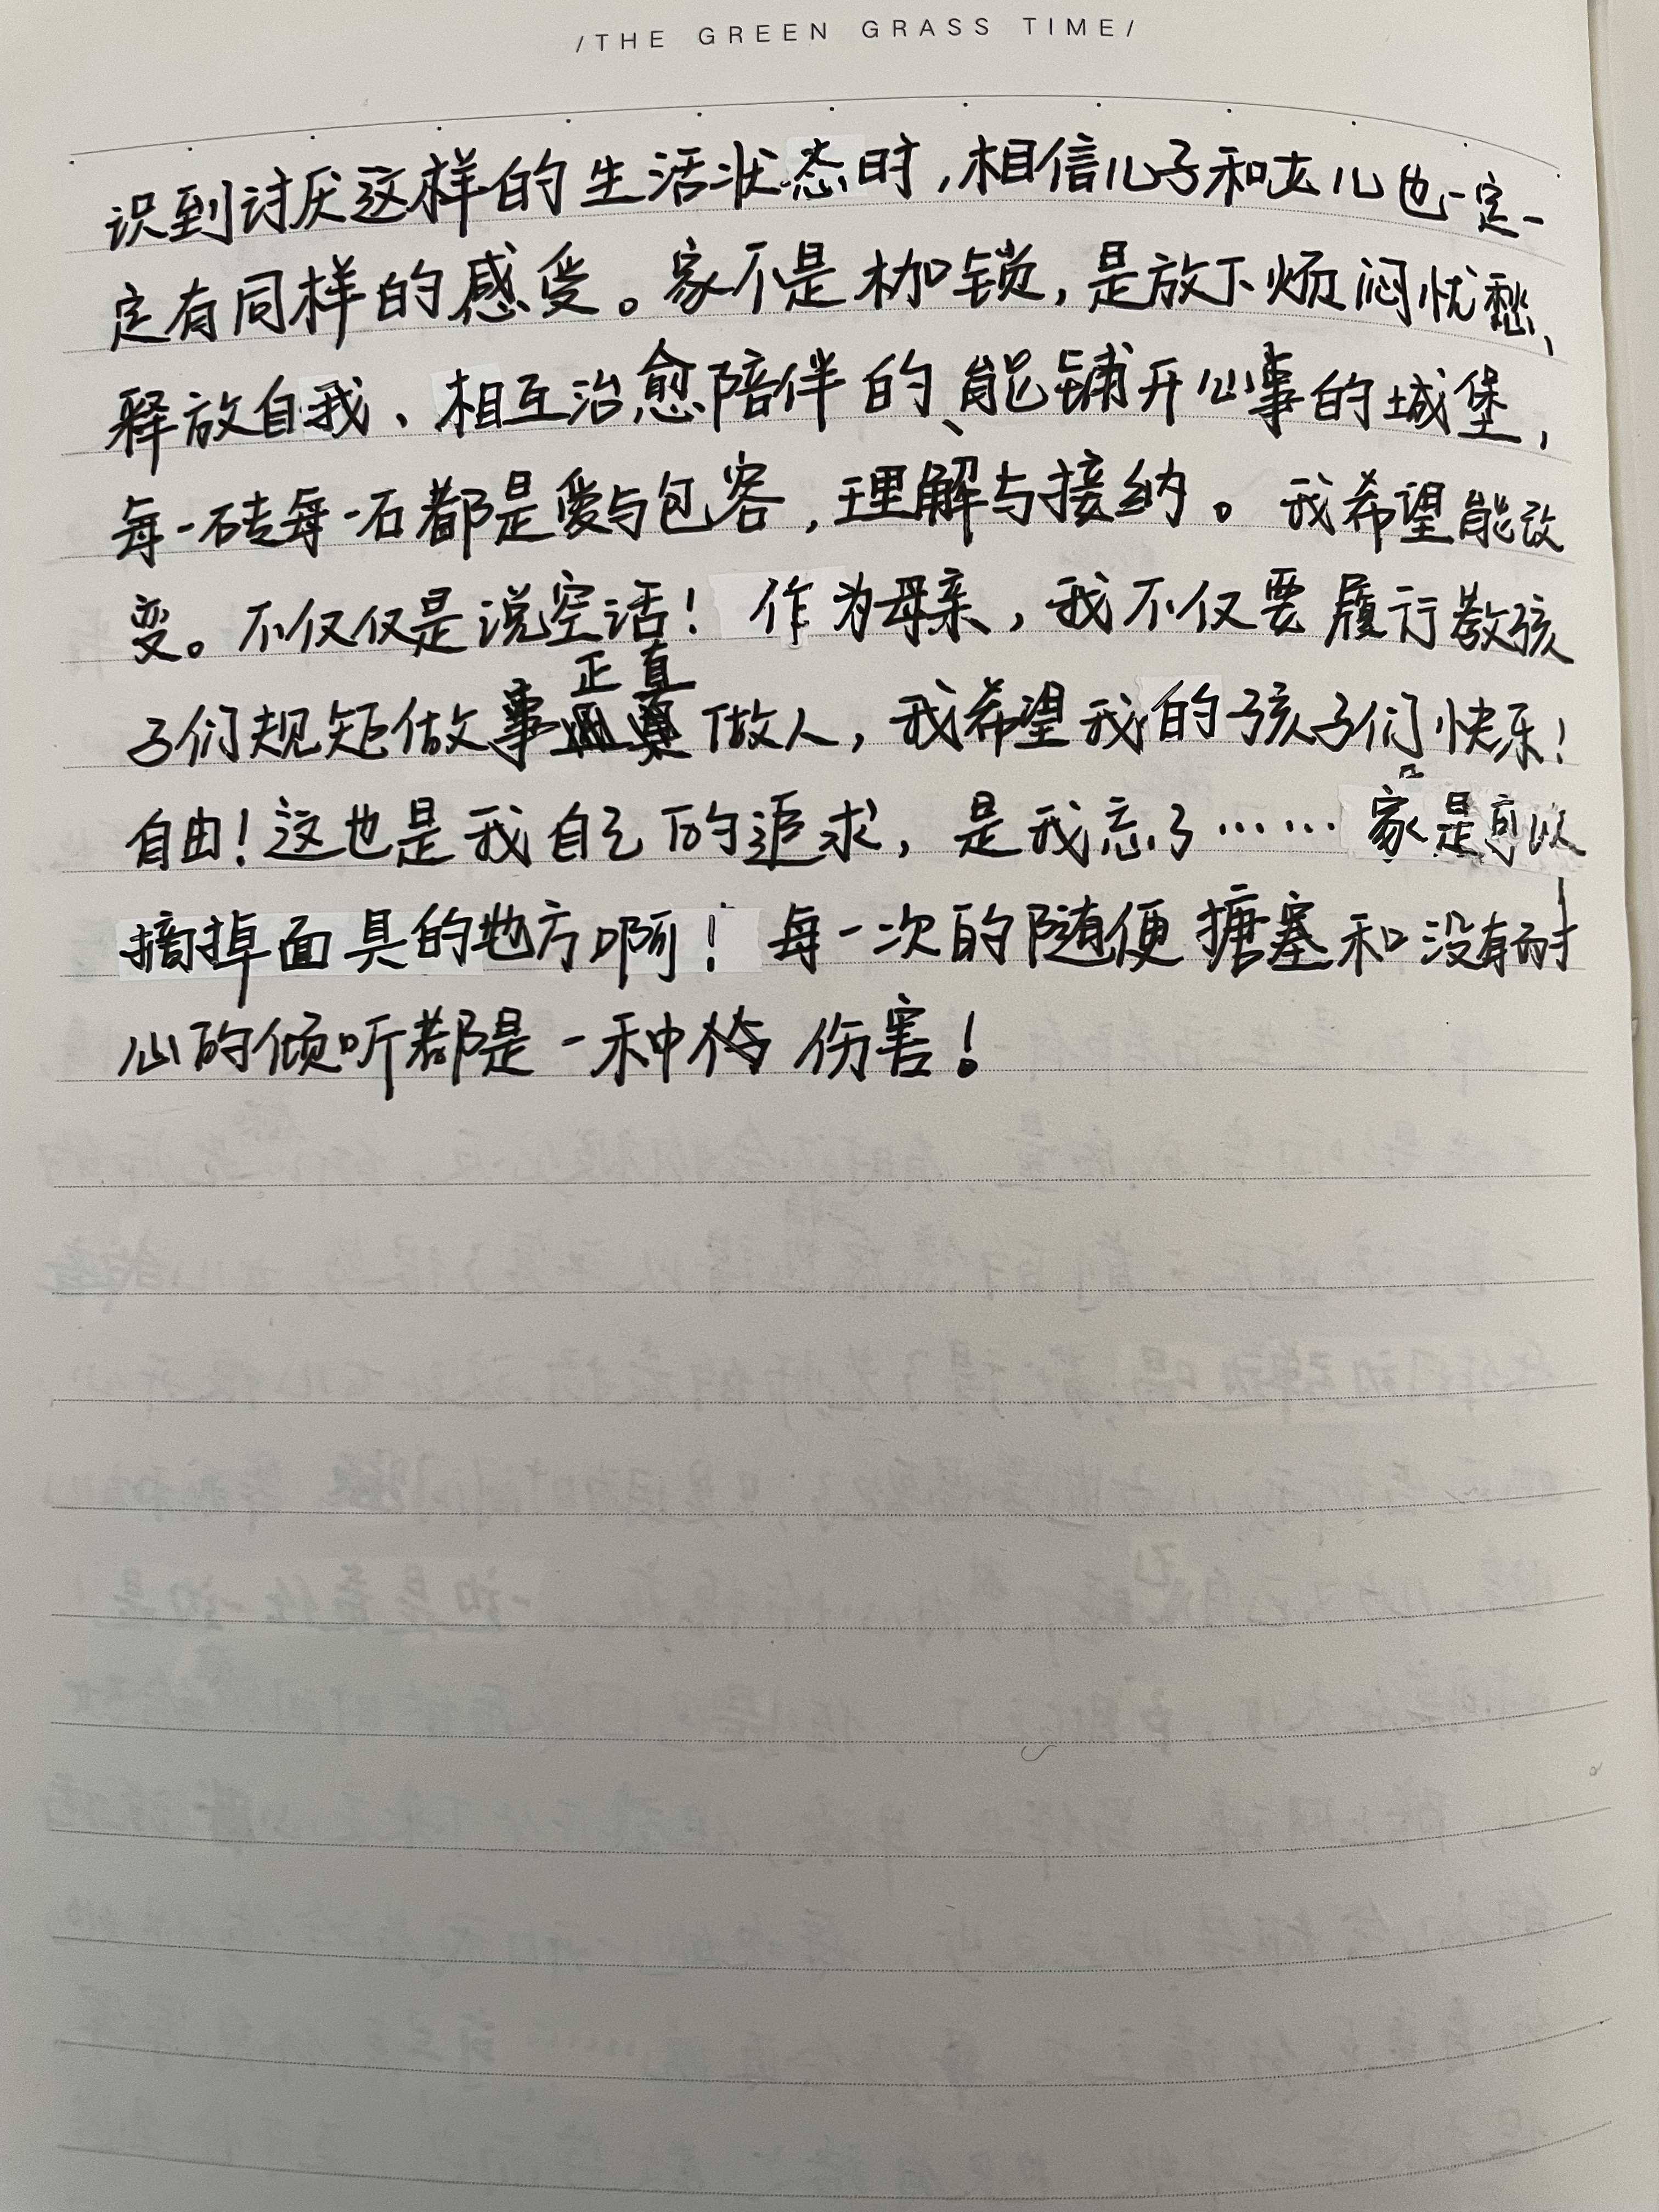 /THE GREEN GRASS TIME/
识到讨厌这样的生活状态时,相信儿子和女儿也一定一
定有同样的感受。家不是枷锁,是放下烦闷忧愁、
释放自我、相互治愈陪伴的、能铺开心事的城堡,
每一砖每一石都是爱与包容,理解与接纳。我希望能改
变。不仅仅是说空话!作为母亲,我不仅要履行教孩
子们规矩做事正直做人,我希望我的孩子们快乐!
自由!这也是我自己的追求,是我忘了……家是可以
摘掉面具的地方啊!每一次的随便搪塞和没有耐
心的倾听都是一种伤害!